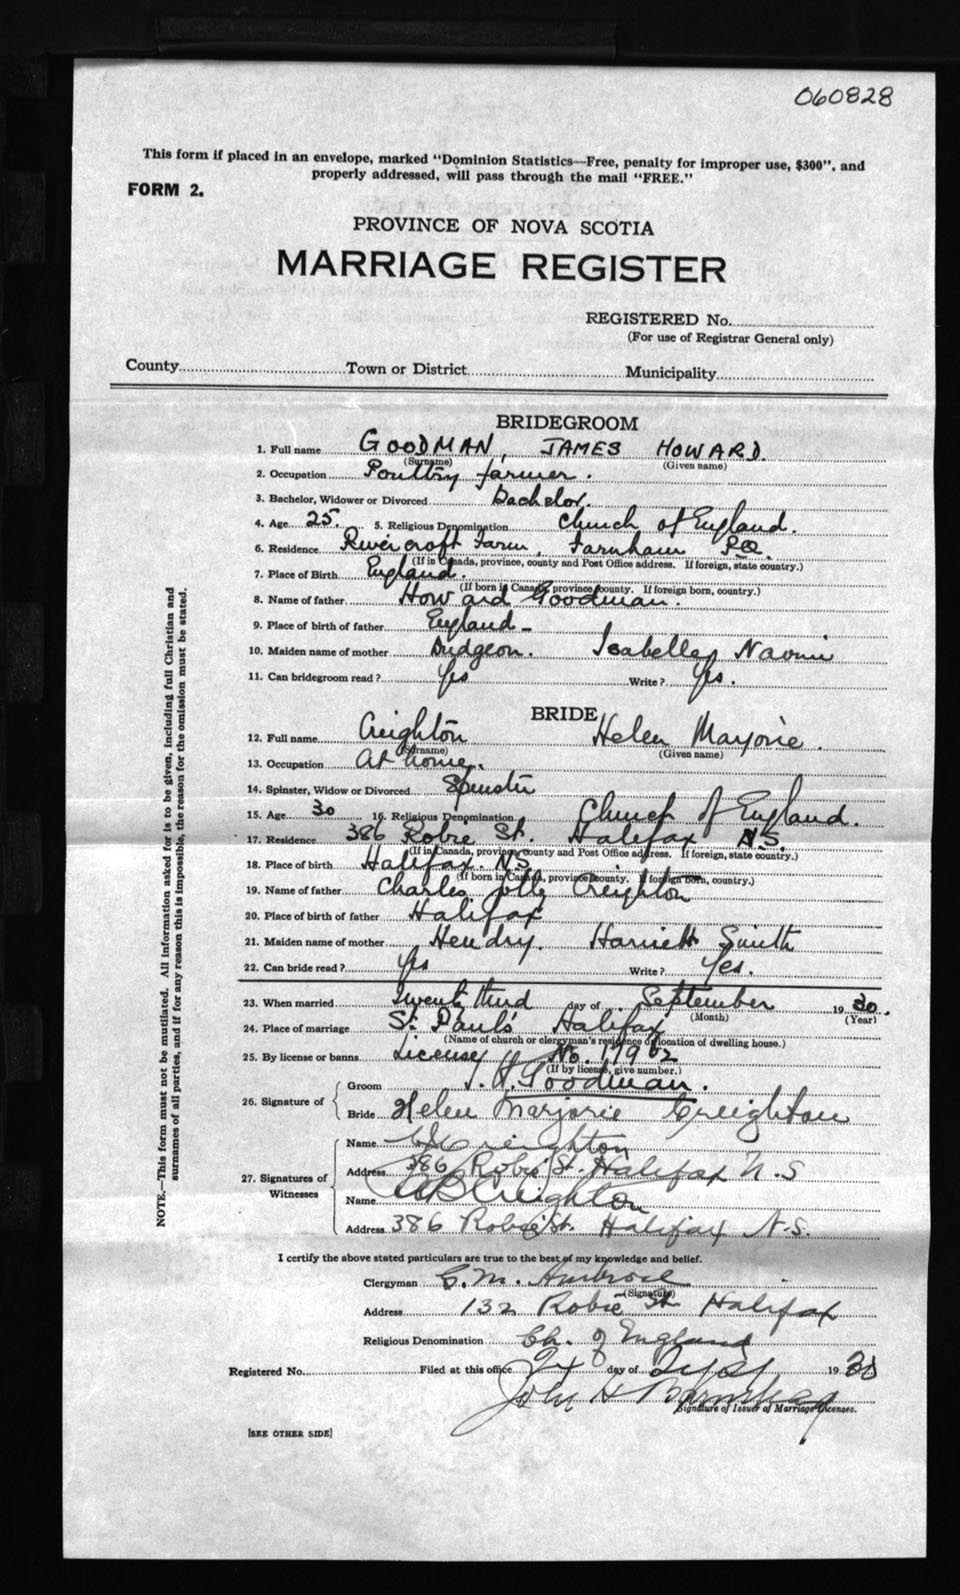 060828
This form if placed in an envelope, marked "Dominion Statistics—Free, penalty for improper use, $300", and
properly addressed, will pass through the mail "FREE."
FORM 2.
PROVINCE OF NOVA SCOTIA
MARRIAGE REGISTER
REGISTERED No.
(For use of Registrar General only)
County Town or District Municipality
BRIDEGROOM
1. Full name GOODMAN, JAMES HOWARD.
(Surname) (Given name)
2. Occupation Poultry farmer.
3. Bachelor, Widower or Divorced Bachelor.
4. Age 25. 5. Religious Denomination Church of England.
6. Residence Rivercroft Farm, Farnham P.Q.
(If in Canada, province, county and Post Office address. If foreign, state country.)
7. Place of Birth England.
(If born in Canada, province, county. If foreign born, country.)
8. Name of father Howard Goodman.
9. Place of birth of father England
10. Maiden name of mother Dudgeon. Isabella Naomi
11. Can bridegroom read? Yes Write? Yes.
BRIDE
12. Full name Creighton Helen Marjorie.
(Surname) (Given name)
13. Occupation At home.
14. Spinster, Widow or Divorced Spinster
15. Age 30 16. Religious Denomination Church of England.
17. Residence 386 Robie St. Halifax N.S.
(If in Canada, province, county and Post Office address. If foreign, state country.)
18. Place of birth Halifax. N.S.
(If born in Canada, province, county. If foreign born, country.)
19. Name of father Charles Creighton
20. Place of birth of father Halifax
21. Maiden name of mother Hendry. Harriett Smith
22. Can bride read? Yes Write? Yes.
23. When married Twenty third day of September 1930.
(Month) (Year)
24. Place of marriage St. Paul's Halifax
(Name of church or clergyman's residence or location of dwelling house.)
25. By license or banns License No.
(If by license, give number.)
26. Signature of
Groom J. H. Goodman.
Bride Helen Marjorie Creighton
27. Signatures of Witnesses
Name Creighton
Address 386 Robie St. Halifax N.S
Name Creighton
Address 386 Robie St. Halifax N.S.
I certify the above stated particulars are true to the best of my knowledge and belief.
Clergyman Ambrose
(Signature)
Address 132 Robie St Halifax
Religious Denomination Ch. of England
Registered No. Filed at this office day of 1930
John H Barnstead
Signature of Issuer of Marriage Licenses.
[SEE OTHER SIDE]
NOTE.—This form must not be mutilated. All information asked for is to be given, including full Christian and
surnames of all parties, and if for any reason this is impossible, the reason for the omission must be stated.